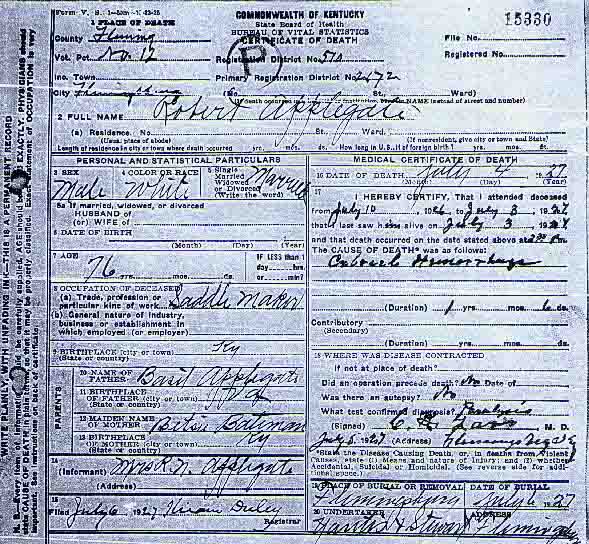 Form V. S. 1
COMMONWEALTH OF KENTUCKY
State Board of Health
BUREAU OF VITAL STATISTICS
CERTIFICATE OF DEATH
15330
1 PLACE OF DEATH
County Fleming
File No.
Vot. Pct No. 12
Registration District No. 570
Registered No.
Inc. Town
Primary Registration District No. 2472
City Flemingsburg (No. St., Ward)
2 FULL NAME Robert Applegate
(a) Residence. No. St., Ward.
(Usual place of abode) (If nonresident, give city or town and State)
Length of residence in city or town where death occurred yrs. mos. ds. How long in U.S., if of foreign birth? yrs. mos. ds.
PERSONAL AND STATISTICAL PARTICULARS
3 SEX Male
4 COLOR OR RACE White
5 Single Married Widowed or Divorced (Write the word) Married
5a If married, widowed, or divorced
HUSBAND of
(or) WIFE of
6 DATE OF BIRTH
(Month) (Day) (Year)
7 AGE 76 yrs. mos. ds.
IF LESS than 1 day, hrs. or min?
8 OCCUPATION OF DECEASED
(a) Trade, profession or particular kind of work Saddle Maker
(b) General nature of industry, business or establishment in which employed (or employer)
9 BIRTHPLACE (city or town) Ky
(State or country)
PARENTS
10 NAME OF FATHER Basil Applegate
11 BIRTHPLACE OF FATHER (city or town)
(State or country)
12 MAIDEN NAME OF MOTHER Betsie Bateman
13 BIRTHPLACE OF MOTHER (city or town) Ky
(State or country)
14
(Informant) Mrs R. N. Applegate
(Address)
15
Filed July 6 1927
Registrar
MEDICAL CERTIFICATE OF DEATH
16 DATE OF DEATH July 4 1927
(Month) (Day) (Year)
17
I HEREBY CERTIFY, That I attended deceased
from July 10 1926 to July 3 1927
that I last saw him alive on July 3 1927
and that death occurred on the date stated above at m.
The CAUSE OF DEATH* was as follows:
Cerebral Hemorrhage
(Duration) 1 yrs. mos. 6 ds.
Contributory
(Secondary)
(Duration) yrs. mos. ds.
18 WHERE WAS DISEASE CONTRACTED
if not at place of death?
Did an operation precede death? No Date of
Was there an autopsy? No
What test confirmed diagnosis? Paralysis
(Signed) M. D.
July 5 1927 (Address) Flemingsburg Ky
*State the Disease Causing Death, or, in deaths from Violent Causes, state (1) Means and nature of Injury; and (2) whether Accidental, Suicidal or Homicidal. (See reverse side for additional space.)
19 PLACE OF BURIAL OR REMOVAL
DATE OF BURIAL
July 6 1927
20 UNDERTAKER